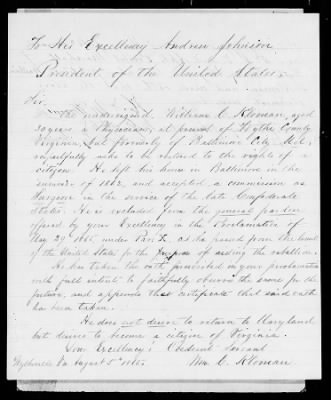 To His Excellency Andrew Johnson
President of the United States.
Sir.
The undersigned, William C. Kloman, aged
30 years a Physician, at present of Wythe County
Virginia, but formerly of Baltimore City, Md,
respectfully asks to be restored to the rights of a
citizen. He left his home in Baltimore in the
summer of 1862, and accepted a commission as
Surgeon in the service of the late Confederate
States. He is excluded from the general pardon
offered by your Excellency in the Proclamation of
May 29th 1865, under Par. , as he passed from the
of the United States for the purpose of aiding the rebellion.
He has taken the oath prescribed in your proclamation
with full intent to faithfully observe the same for the
future, and appends that certificate that said oath
has been taken.
He does not desire to return to Maryland
but desires to become a citizen of Virginia.
Your Excellency's Obedient Servant
Wytheville Va August 5th 1865. Wm C. Kloman